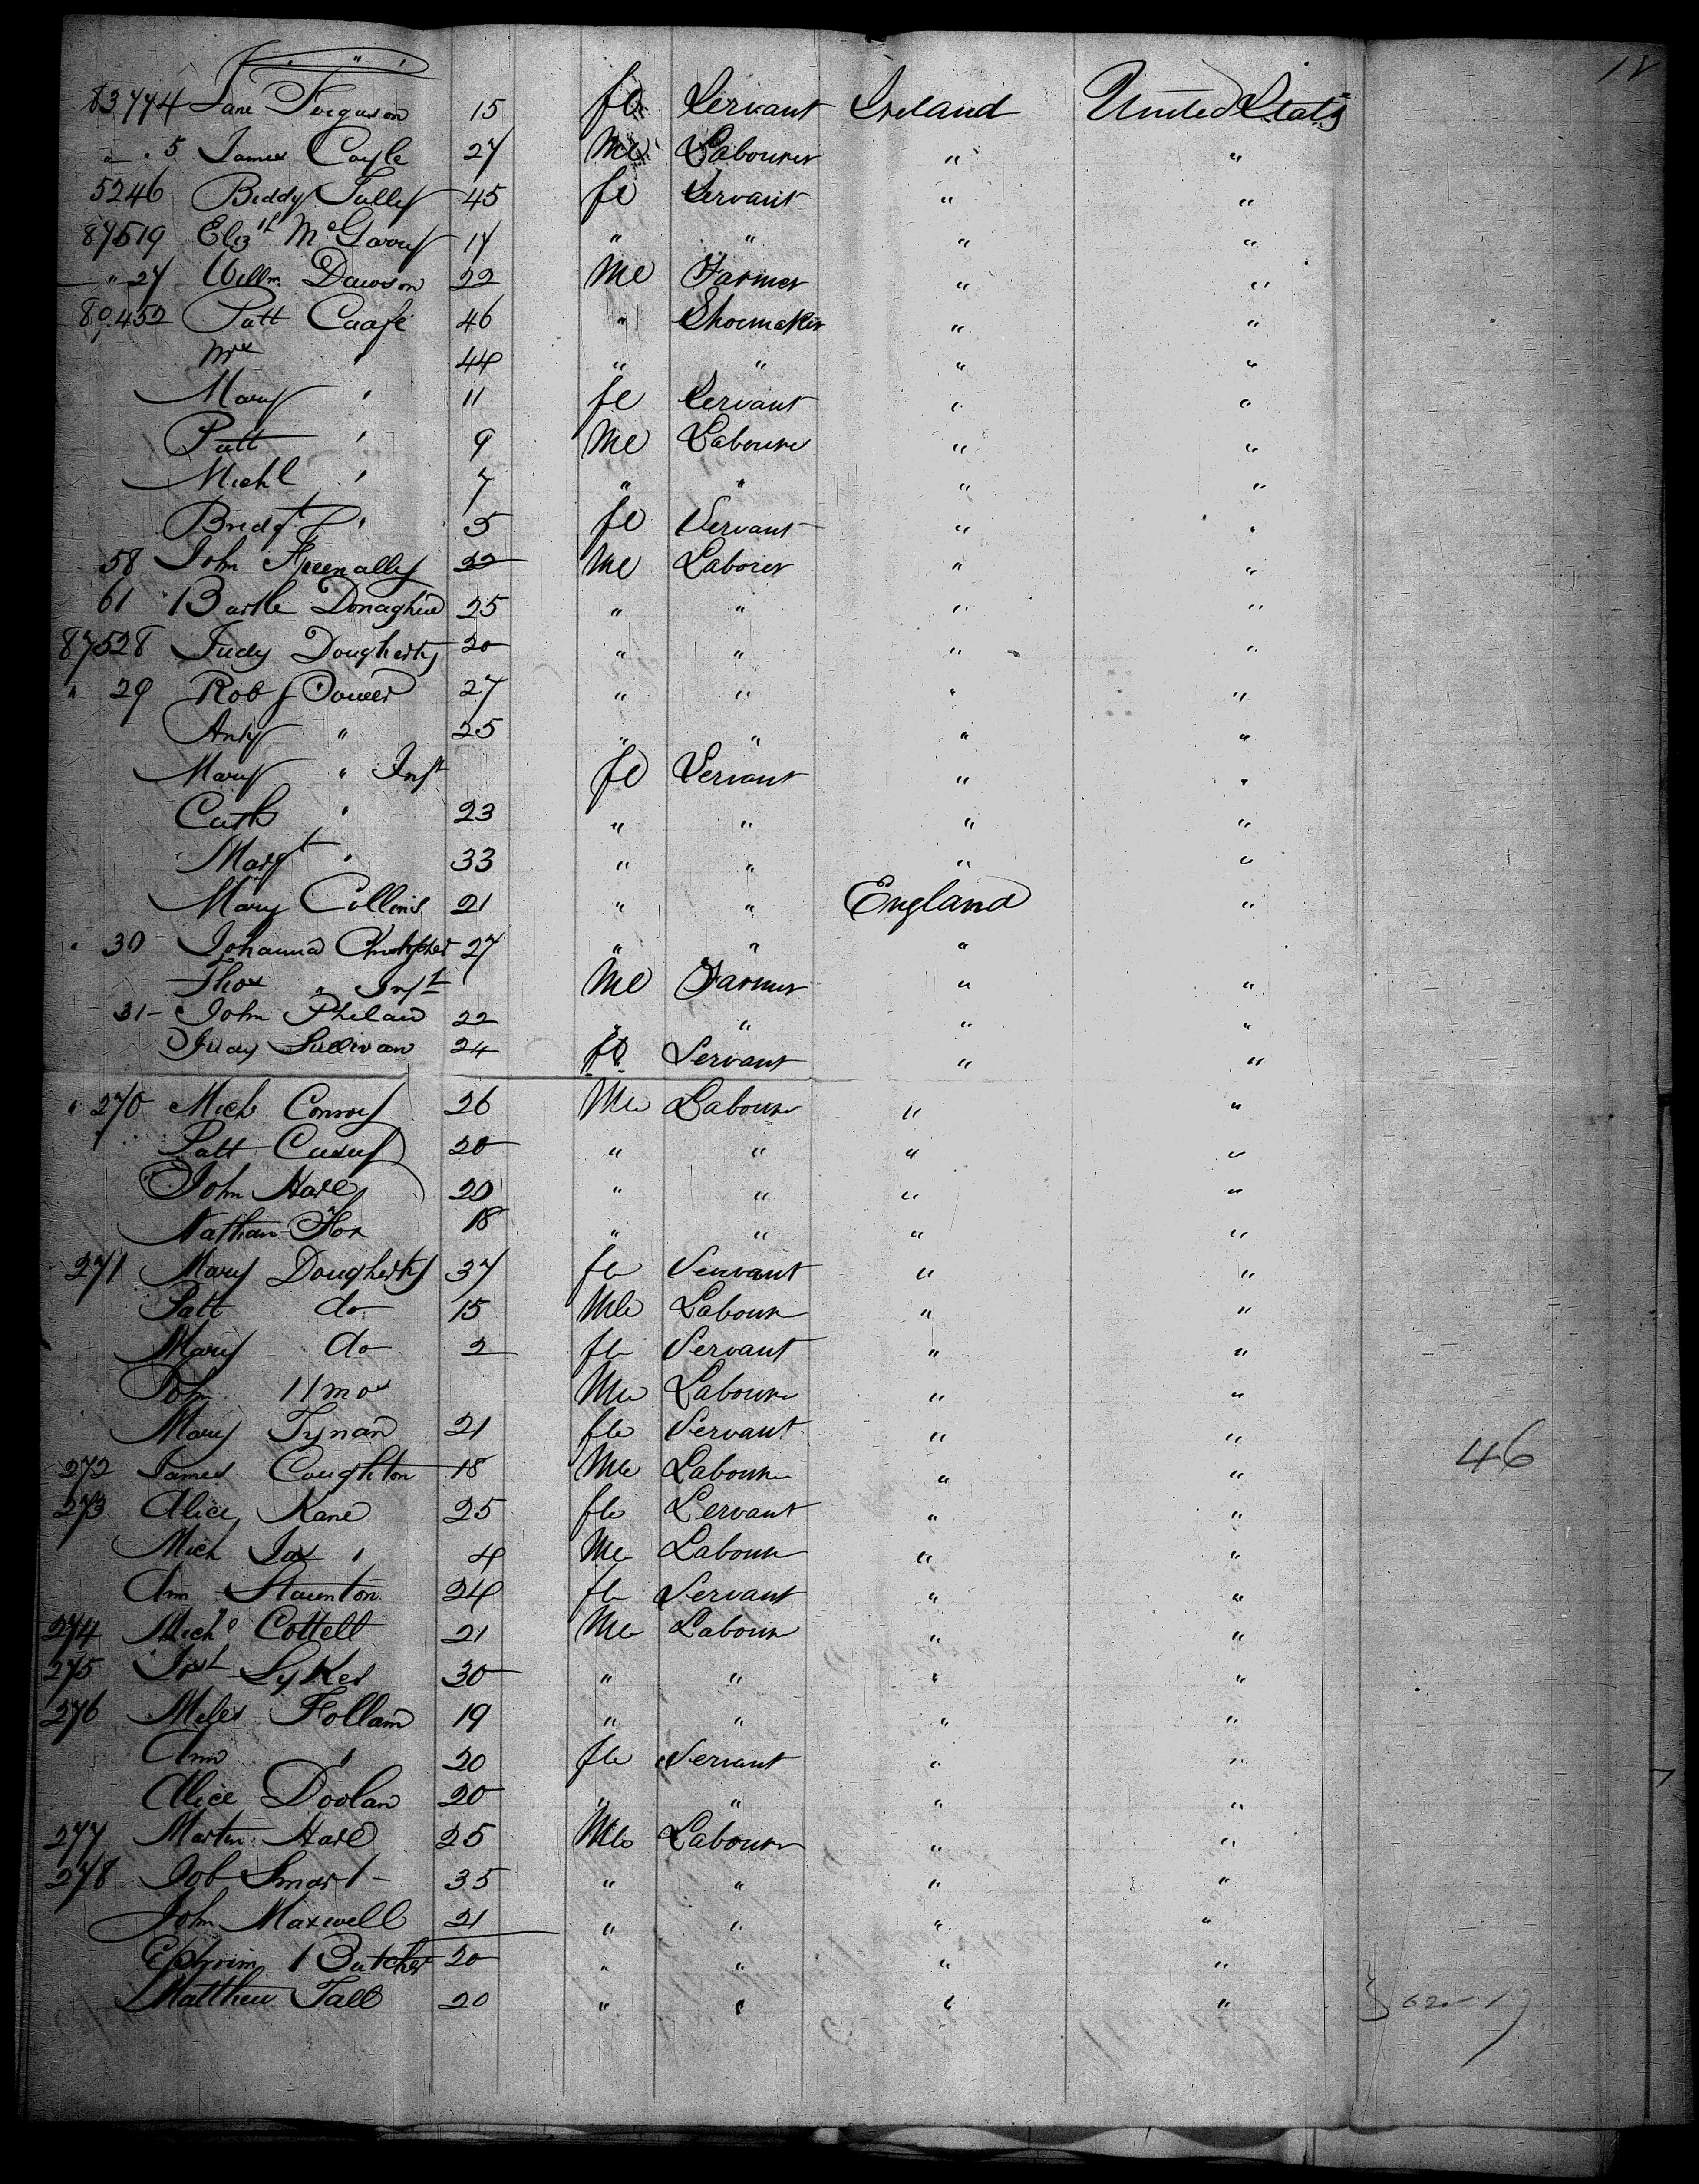 12
83774 Jane Ferguson 15 fe Servant Ireland United States
" " 5 James Coyle 27 Me Labourer " "
5246 Biddy Tully 45 fe Servant " "
87519 Elizth McGarry 17 " " " "
" 27 Willm Dawson 22 Me Farmer " "
89.452 Patt Caafe 46 " Shoemaker " "
Mrs " 44 " " " "
Mary " 11 fe Servant " "
Patt " 9 Me Laboure " "
Michl " 7 " " " "
Bridgt " 5 fe Servant " "
58 John 22 Me Laborer " "
61 Bartle Donaghue 25 " " " "
87528 Judy Dougherty 20 " " " "
" 29 Rob Power 27 " " " "
Anty " 25 " " " "
Mary " Inft fe Servant " "
Cath " 23 " " " "
Margt " 33 " " " "
Mary Collins 21 " " England "
" 30 Johanna Christopher 27 " " "
Thos " Inft Me Farmer " "
31 - John Phelan 22 " " " "
Judy Sullivan 24 fe Servant " "
" 270 Mich Conroy 26 Me Labour " "
Patt 20 " " " "
John Hare 20 " " " "
Nathan Fox 18 " " " "
271 Mary Dougherty 37 fe Servant " "
Patt do 15 Mle Labour " "
Mary do 2 fe Servant " "
John 11 mos Me Labour " "
Mary Tynan 21 fle Servant " "
272 James Coughton 18 Me Labour " "
46
273 Alice Kane 25 fle Servant " "
Mich " 4 Me Labour " "
Ann Staunton 24 fe Servant " "
274 Michl Cottell 21 Me Labour " "
275 Sykes 30 " " " "
276 Miles Follam 19 " " " "
Ann " 20 fle Servant " "
Alice Doolan 20 " " " "
277 Martin Hare 25 Mle Labour " "
278 Job Smart - 35 " " " "
John Maxwell 21 " " " "
Ephrim Butcher 20 " " " "
Matthew Tall 20 " " " "